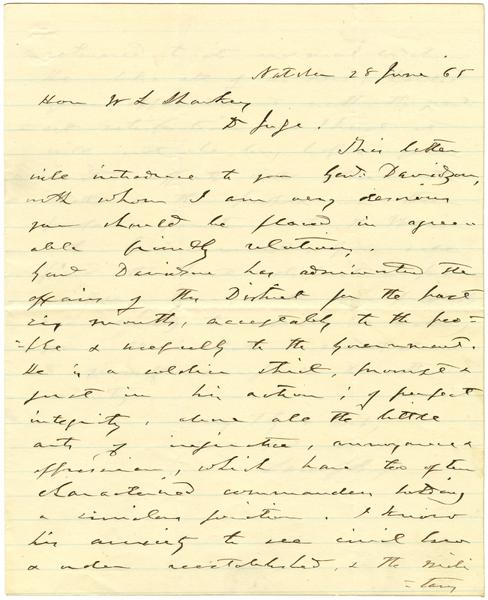 Natchez 28 June 65
Hon W L Sharkey,
D Juge.
This letter
will introduce to you Genl. Davidson,
with whom I am very desirous
you should be placed in agree-
able friendly relations,
Genl Davidson has administered the
affairs of this District for the past
six months, acceptably to the peo=
=ple & usefully to the Government.
He is a soldier strict, prompt &
just in his action; of perfect
integrity, above all the little
acts of injustice, annoyance &
oppression, which have too often
characterized commanders holding
a similar position. I know
his anxiety to see civil law
& order reestablished, & the mili
=tary